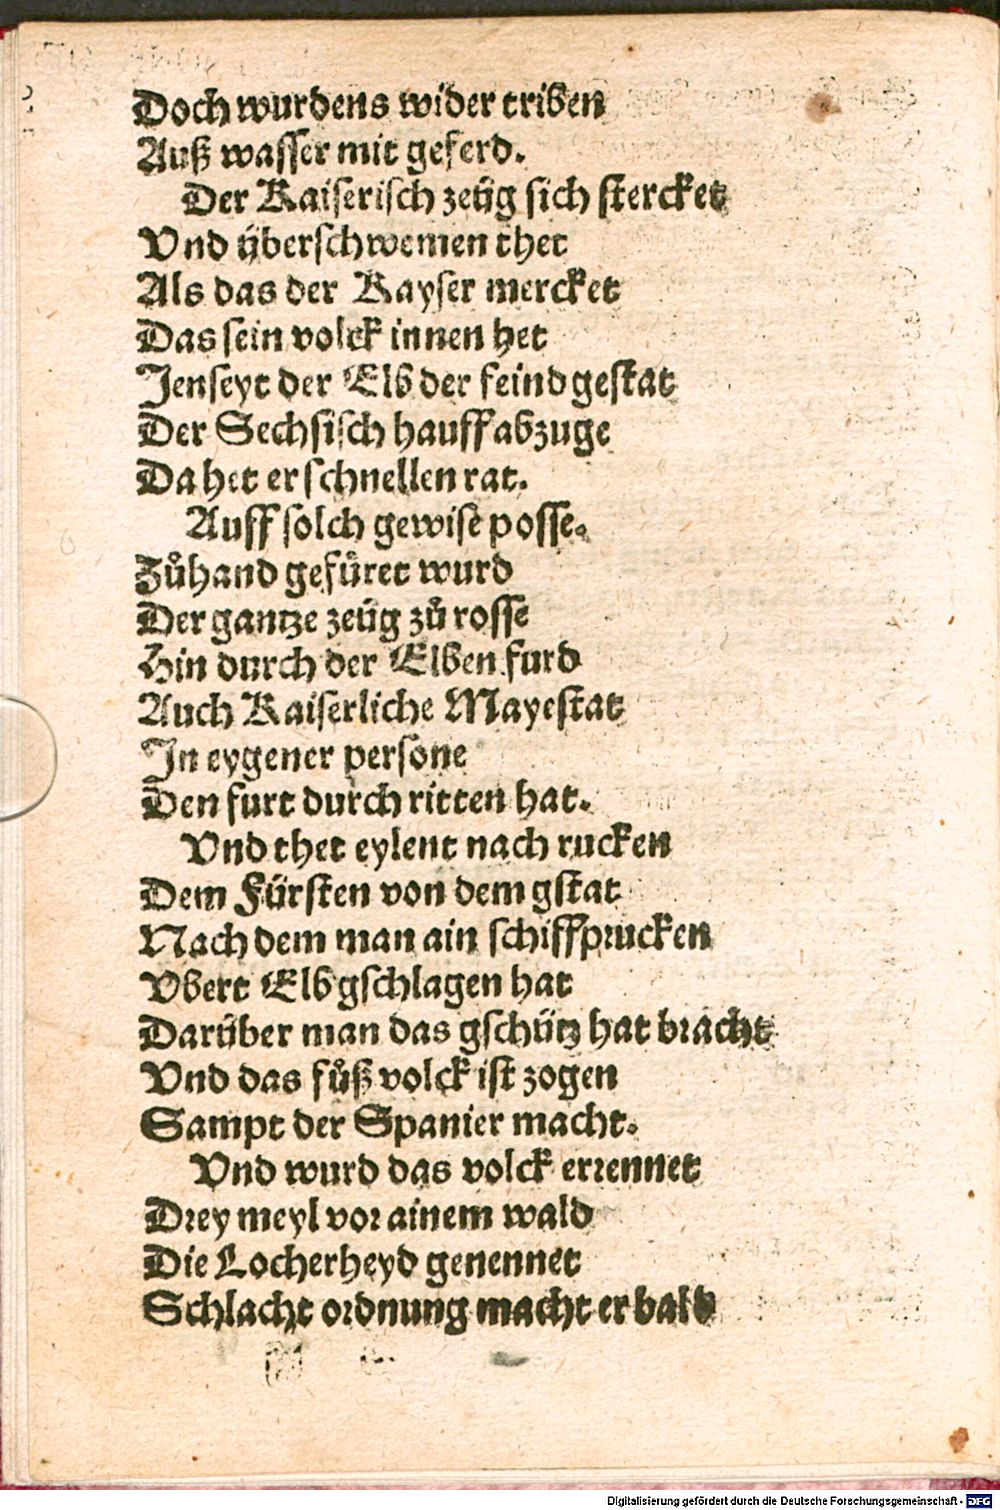 Doch wurdens wider triben
Auß wasser mit geferd.
Der Kaiserisch zeüg sich stercket
Vnd überschwemen thet
Als das der Kayser mercket
Das sein volck innen het
Jenseyt der Elb der feind gestat
Der Sechsisch hauff abzuge
Da het er schnellen rat.
Auff solch gewise posse.
Zůhand gefüret wurd
Der gantze zeüg zů rosse
Hin durch der Elben furd
Auch Kaiserliche Mayestat
In eygener persone
Den furt durch ritten hat.
Vnd thet eylent nach rucken
Dem Fürsten von dem gstat
Nach dem man ain schiffprucken
Vbert Elb gschlagen hat
Darüber man das gschütz hat bracht
Vnd das fůß volck ist zogen
Sampt der Spanier macht.
Vnd wurd das volck errennet
Drey meyl vor ainem wald
Die Locherheyd genennet
Schlacht ordnung macht er bald
Digitalisierung gefördert durch die Deutsche Forschungsgemeinschaft - DFG